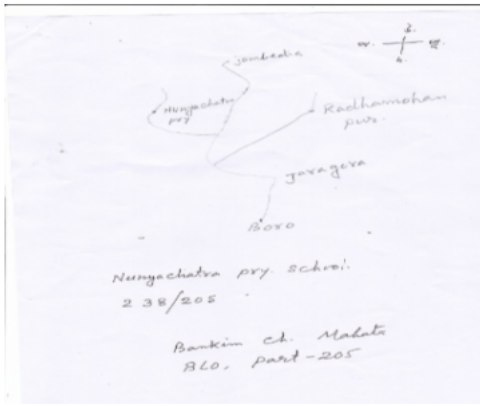 Jambedia
Nunyachatra
pry
Radhamohan
pur.
Jaragora
Boro
Nunyachatra pry. School.
238/205
Bankim Ch. Mahata
BLO, part-205